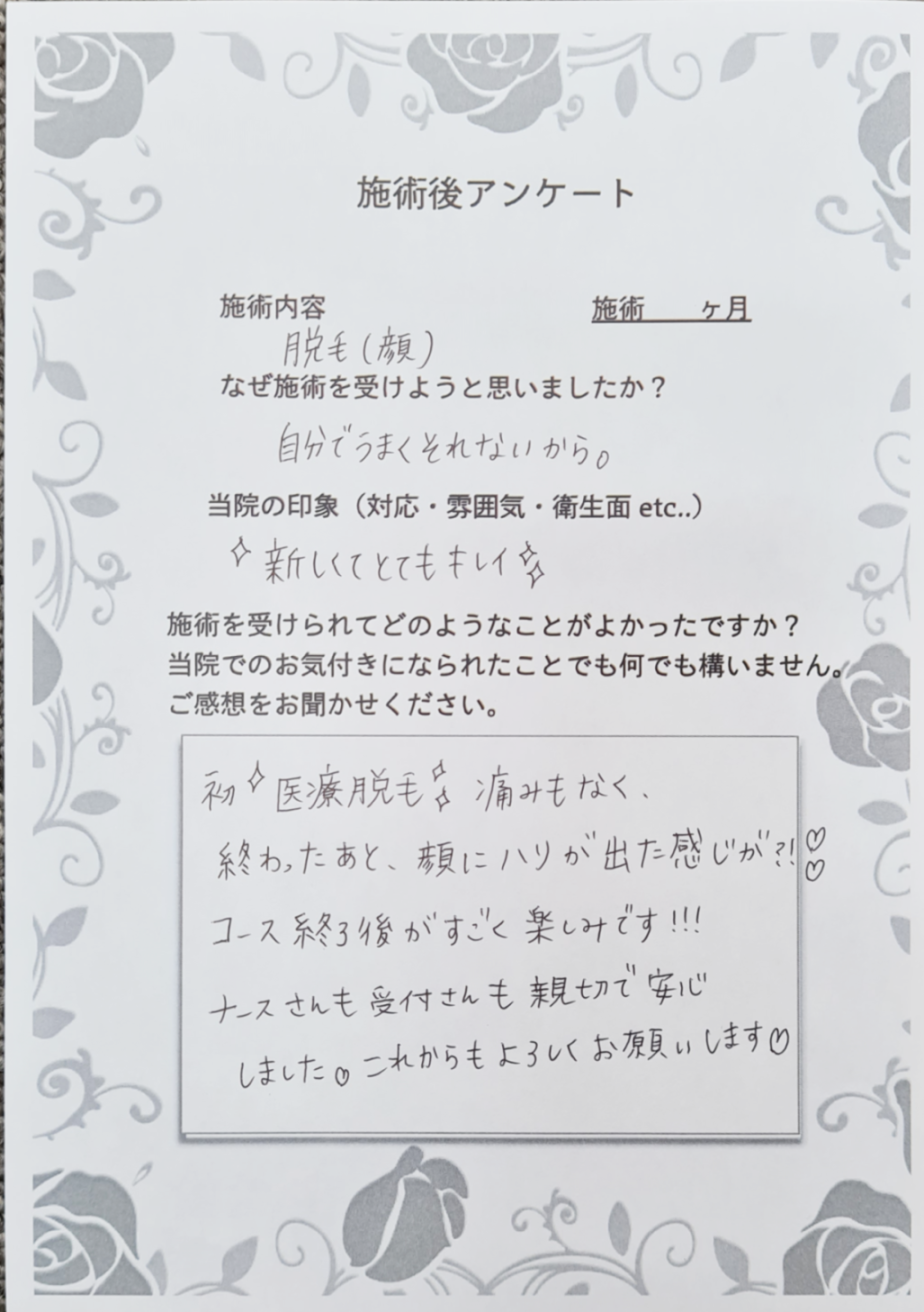 施術後アンケート
施術内容
施術　　ヶ月
脱毛(顔)
なぜ施術を受けようと思いましたか？
自分でうまくそれないから。
当院の印象（対応・雰囲気・衛生面 etc..）
✧新しくてとてもキレイ✧✧
施術を受けられてどのようなことがよかったですか？
当院でのお気付きになられたことでも何でも構いません。
ご感想をお聞かせください。
初✧医療脱毛✧✧ 痛みもなく、
終わったあと、顔にハリが出た感じが?!♡♡
コース終了後がすごく楽しみです!!!
ナースさんも受付さんも親切で安心
しました。これからもよろしくお願いします♡